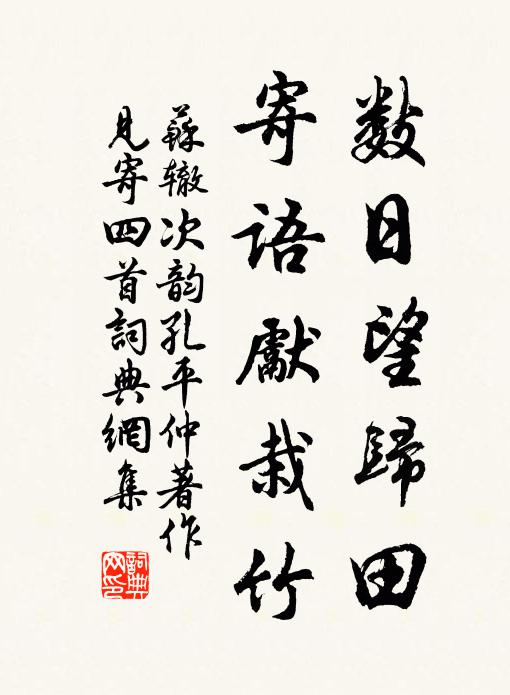 数日望歸田
寄語獻栽竹
蘇辙次韵孔平仲著作
見寄四首詞典網集
詞典
网印